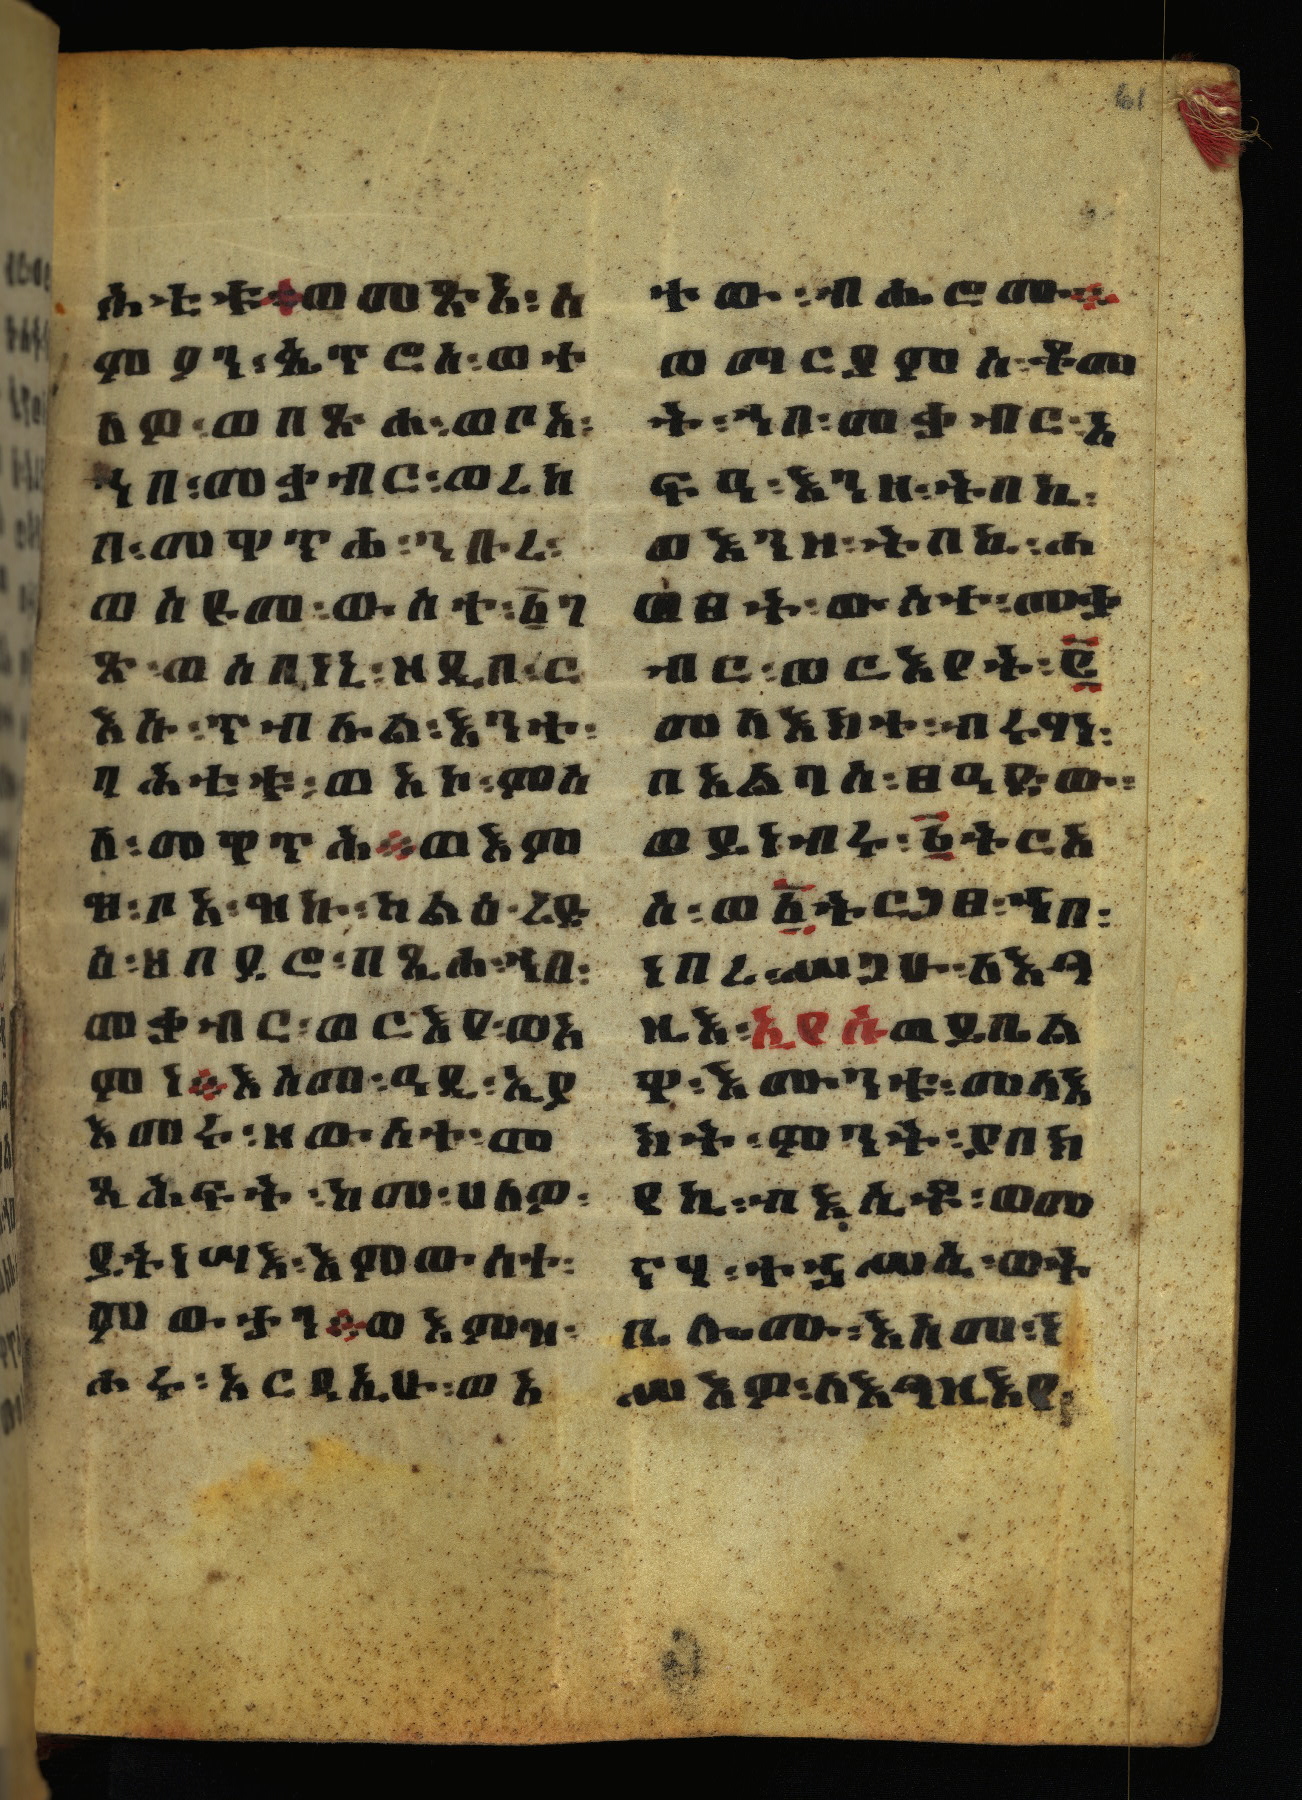 ሕቲቱ፨ወመጽአ፡ ስ
ምዖን፡ ጴጥሮስ፡ ወተ
ለዎ፡ ወበጽሐ፡ ወቦአ፡
ኀበ፡ መቃብር፡ ወረከ
በ፡ መዋጥሐ፡ ንቡረ፡
ወሰደመ፡ ውስተ፡ ፩ገ
ጽ፡ ወሰበነኒ፡ ዘዲበ፡ ር
እሱ፡ ጥብሉል፡ እንተ፡
ባሕቲቱ፡ ወአኮ፡ ምስ
ለ፡ መዋጥሕ፨ወእም
ዝ፡ ቦአ፡ ዝኩ፡ ካልዕ፡ ረድ
ዕ፡ ዘበደሮ፡ በጺሐ፡ ኀበ፡
መቃብር፡ ወርእየ፡ ወአ
ምነ፨እስመ፡ ዓዲ፡ ኢያ
እመሩ፡ ዘውስተ፡ መ
ጻሕፍት፡ ከመ፡ ሀለዎ፡
ይትነሣእ፡ እምውስተ፡
ምውታን፨ወእምዝ፡
ሖሩ፡ አርዳኢሁ፡ ወአ
ተው፡ ብሔሮሙ፨
ወማርያምሰ፡ ቆመ
ት፡ ኀበ፡ መቃብር፡ እ
ፍዓ፡ እንዘ፡ ትበኪ፡
ወእንዘ፡ ትበኪ፡ ሐ
ወፀት፡ ውስተ፡ መቃ
ብር፡ ወርእየት፡ ፪
መላእክተ፡ ብሩሃነ፡
በአልባስ፡ ፀዓድው፡
ወይነብሩ፡ ፩ትርአ
ሰ፡ ወ፩ትርጋፀ፡ ኀበ፡
ነበረ፡ ሥጋሁ፡ ለእግ
ዚእ፡ ኢየሱወይቤል
ዋ፡ እሙንቱ፡ መላእ
ክት፡ ምንት፡ ያበክ
የኪ፡ ብእሲቶ፡ ወመ
ኑሃ፡ ተኀሥሢ፡ ወት
ቤ፡ ሎሙ፡ እስመ፡ ነ
ሥእዎ፡ ለእግዚእየ፡